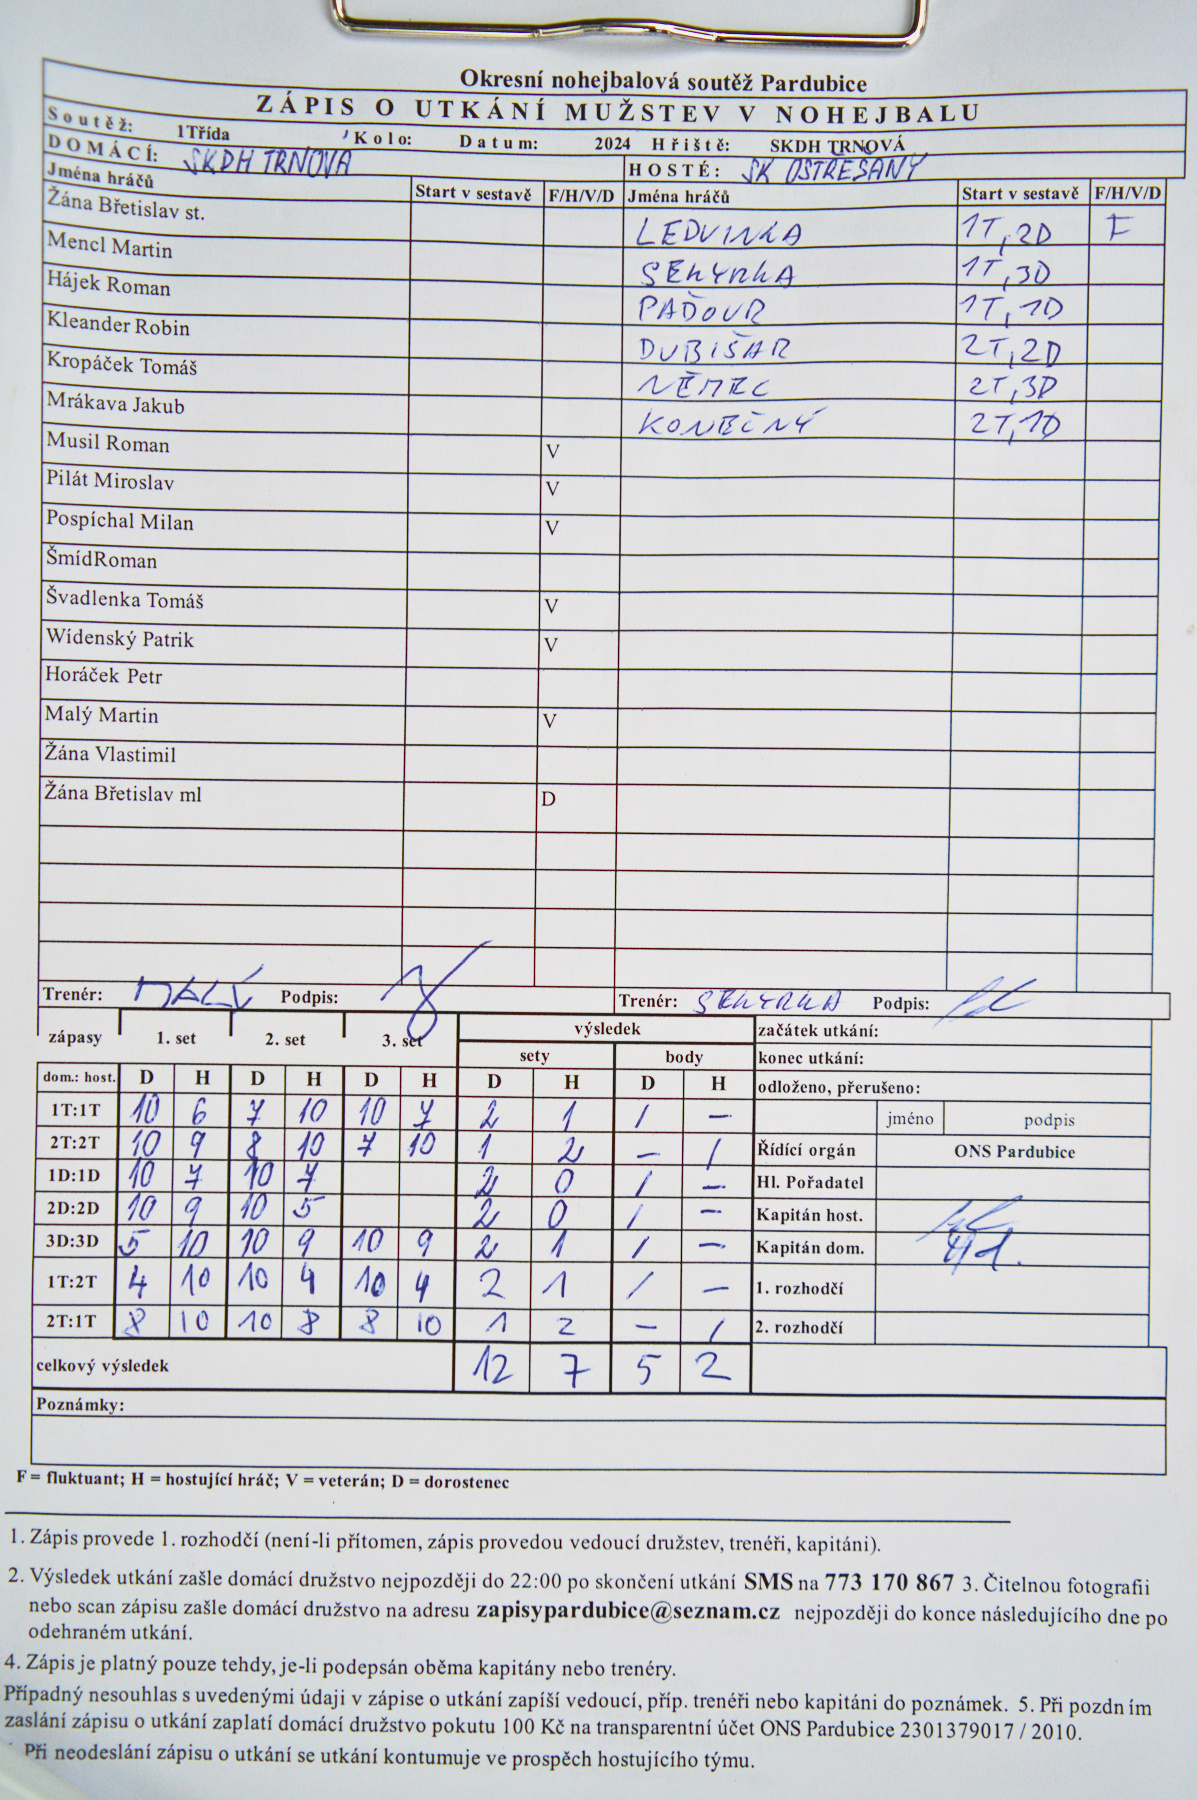 Okresní nohejbalová soutěž Pardubice
ZÁPIS O UTKÁNÍ MUŽSTEV V NOHEJBALU
Soutěž: 1Třída Kolo: Datum: 2024 Hřiště: SKDH TRNOVÁ
DOMÁCÍ: SKDH TRNOVA HOSTÉ: SK OSTŘEŠANY
Jména hráčů Start v sestavě F/H/V/D Jména hráčů Start v sestavě F/H/V/D
Žána Břetislav st. LEDVINKA 1T,2D F
Mencl Martin SEKYRKA 1T,3D
Hájek Roman PAĎOUR 1T,1D
Kleander Robin DUBIŠAR 2T,2D
Kropáček Tomáš NĚMEC 2T,3D
Mrákava Jakub KONEČNÝ 2T,1D
Musil Roman V
Pilát Miroslav V
Pospíchal Milan V
ŠmídRoman
Švadlenka Tomáš V
Wídenský Patrik V
Horáček Petr
Malý Martin V
Žána Vlastimil
Žána Břetislav ml D
Trenér: MALÝ Podpis: Trenér: SEKYRKA Podpis:
zápasy 1. set 2. set 3. set výsledek začátek utkání:
sety body konec utkání:
dom.: host. D H D H D H D H D H odloženo, přerušeno:
1T:1T 10 6 7 10 10 7 2 1 1 – jméno podpis
2T:2T 10 9 8 10 7 10 1 2 – 1 Řídící orgán ONS Pardubice
1D:1D 10 7 10 7 2 0 1 – Hl. Pořadatel
2D:2D 10 9 10 5 2 0 1 – Kapitán host.
3D:3D 5 10 10 9 10 9 2 1 1 – Kapitán dom.
1T:2T 4 10 10 4 10 4 2 1 1 – 1. rozhodčí
2T:1T 8 10 10 8 8 10 1 2 – 1 2. rozhodčí
celkový výsledek 12 7 5 2
Poznámky:
F = fluktuant; H = hostující hráč; V = veterán; D = dorostenec
1. Zápis provede 1. rozhodčí (není-li přítomen, zápis provedou vedoucí družstev, trenéři, kapitáni).
2. Výsledek utkání zašle domácí družstvo nejpozději do 22:00 po skončení utkání SMS na 773 170 867 3. Čitelnou fotografii
nebo scan zápisu zašle domácí družstvo na adresu zapisypardubice@seznam.cz nejpozději do konce následujícího dne po
odehraném utkání.
4. Zápis je platný pouze tehdy, je-li podepsán oběma kapitány nebo trenéry.
Případný nesouhlas s uvedenými údaji v zápise o utkání zapíší vedoucí, příp. trenéři nebo kapitáni do poznámek. 5. Při pozdním
zaslání zápisu o utkání zaplatí domácí družstvo pokutu 100 Kč na transparentní účet ONS Pardubice 2301379017 / 2010.
Při neodeslání zápisu o utkání se utkání kontumuje ve prospěch hostujícího týmu.